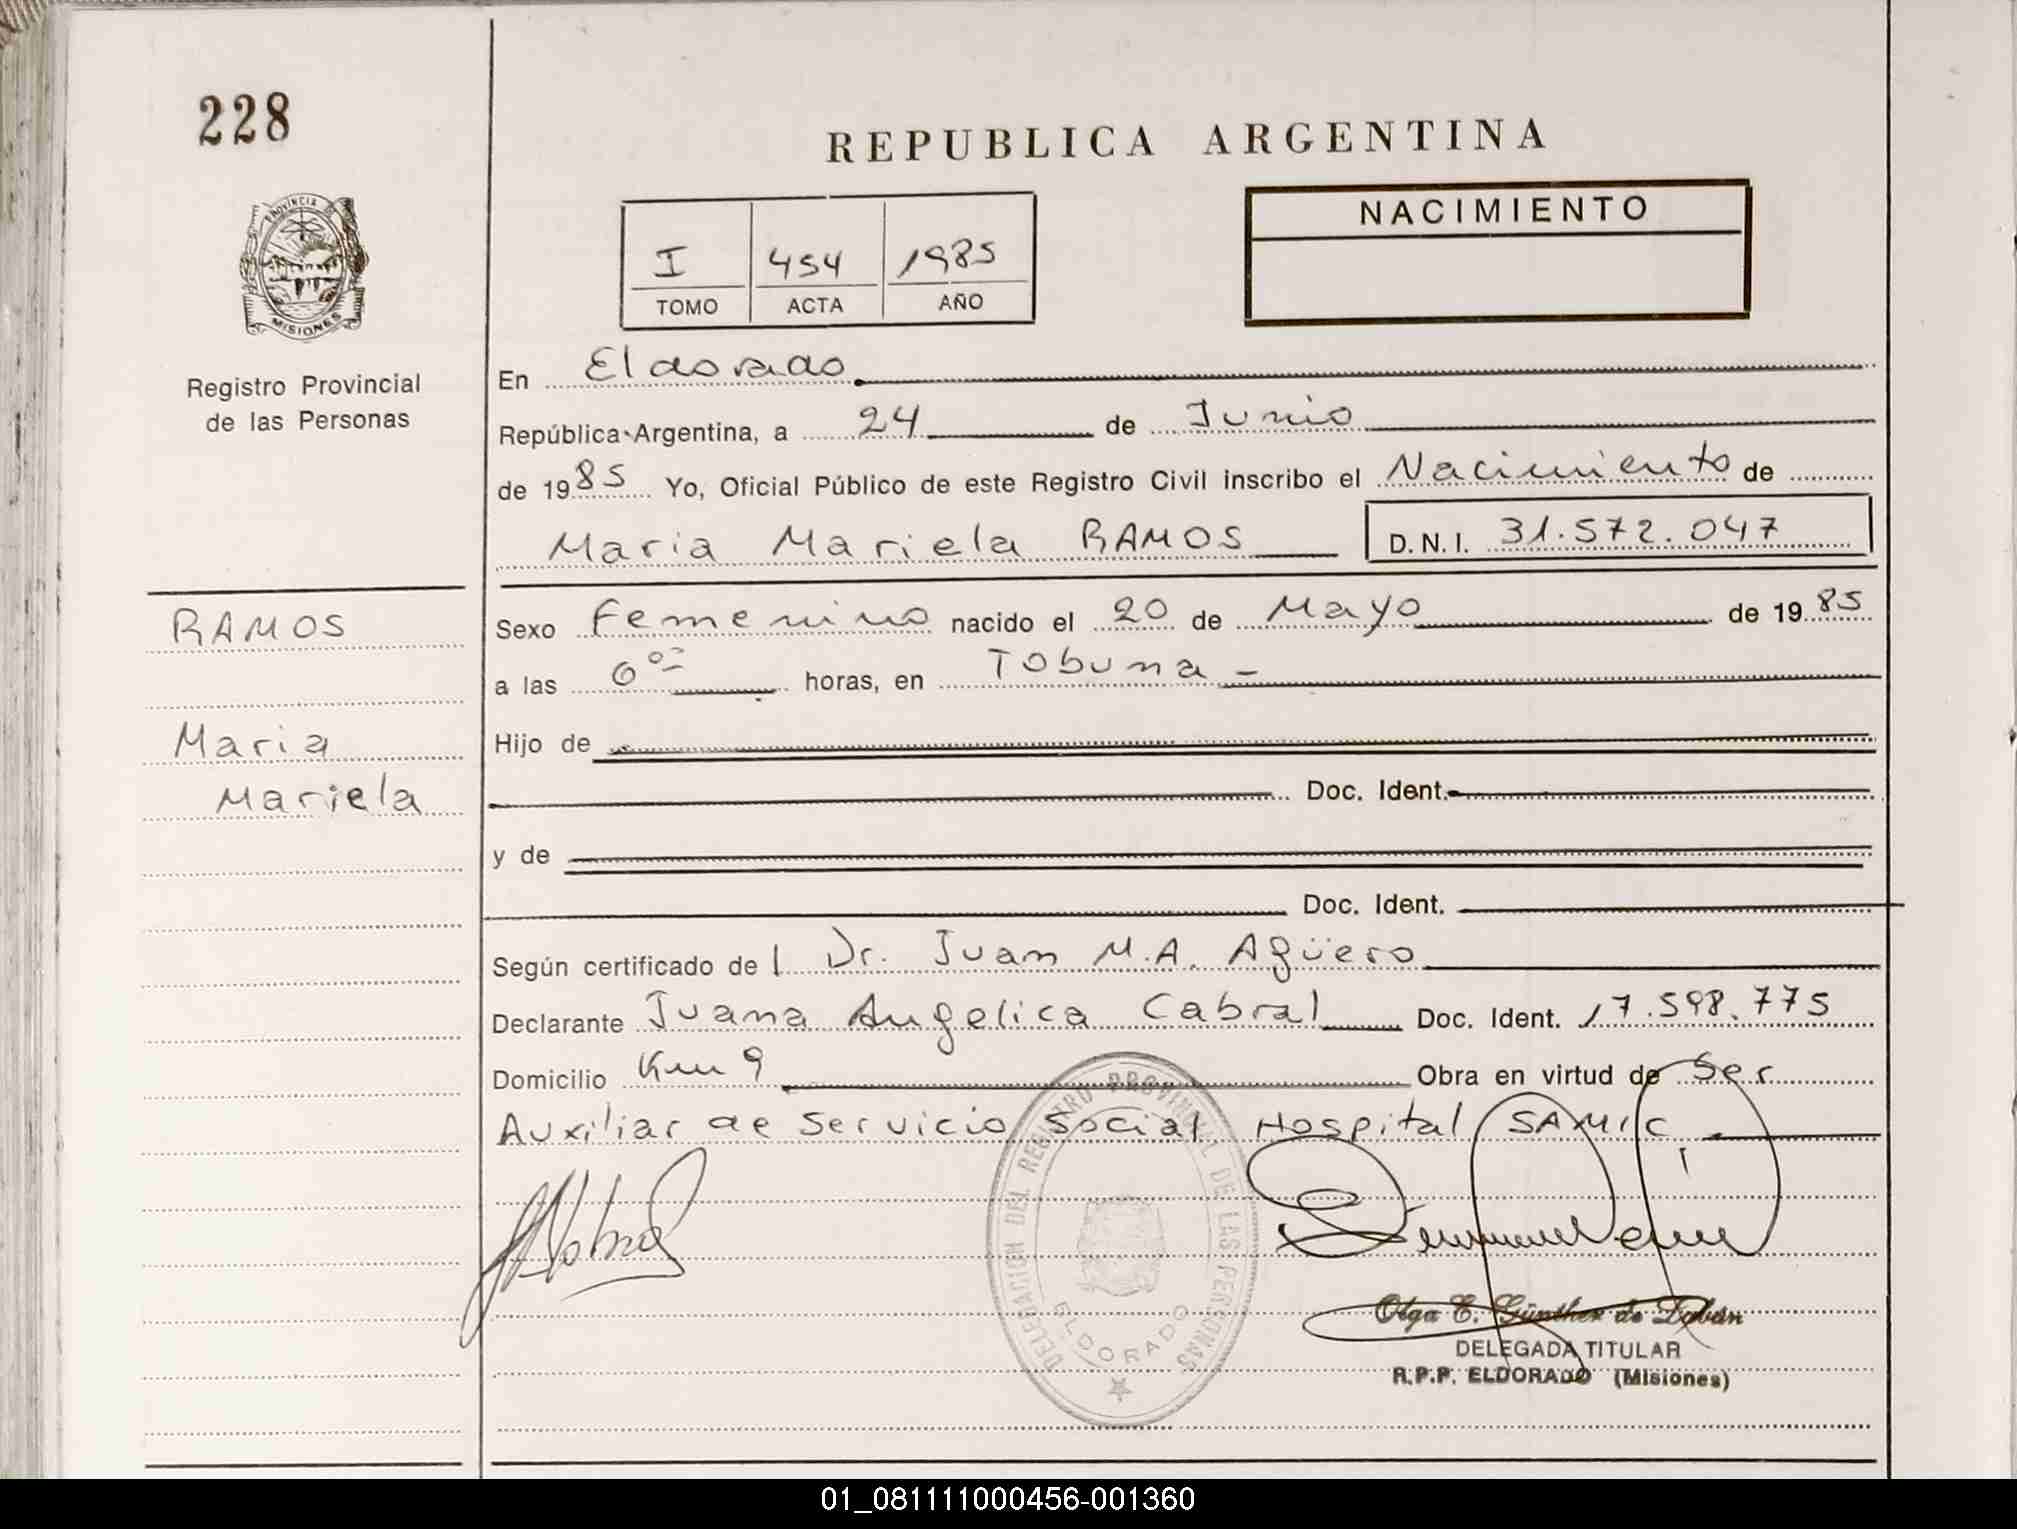 228
REPUBLICA ARGENTINA
PROVINCIA DE
MISIONES
Registro Provincial
de las Personas
I 454 1985
TOMO ACTA AÑO
NACIMIENTO
En Eldorado
República Argentina, a 24 de Junio
de 1985 Yo, Oficial Público de este Registro Civil inscribo el Nacimiento de
Maria Mariela RAMOS D.N.I. 31.572.047
RAMOS
Maria
Mariela
Sexo Femenino nacido el 20 de Mayo de 1985
a las horas, en Tobuna -
Hijo de
Doc. Ident.
y de
Doc. Ident.
Según certificado de Dr. Juan M.A. Agüero
Declarante Juana Angelica Cabral Doc. Ident. 17.598.775
Domicilio Km 9 Obra en virtud de Ser
Auxiliar de Servicio Social Hospital SAMIC
DELEGACION DEL REGISTRO PROVINCIAL DE LAS PERSONAS
ELDORADO
Olga E. Günther de
DELEGADA TITULAR
R.P.P. ELDORADO (Misiones)
01_081111000456-001360